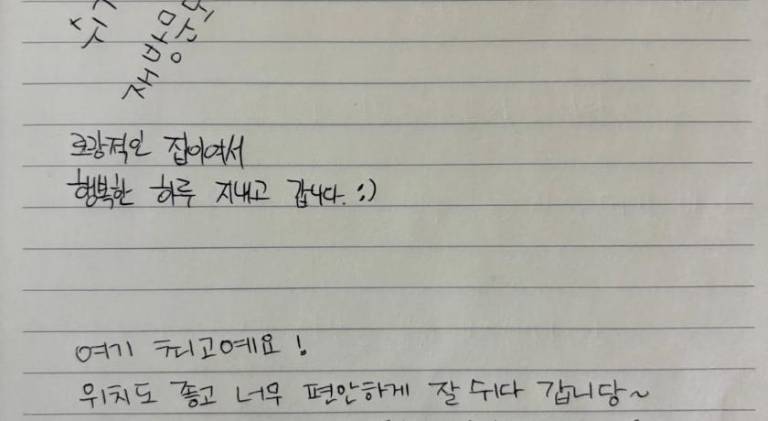 재방문
로광적인 집이여서
행복한 하루 지내고 갑니다. :)
여기 최고예요!
위치도 좋고 너무 편안하게 잘 쉬다 갑니당~